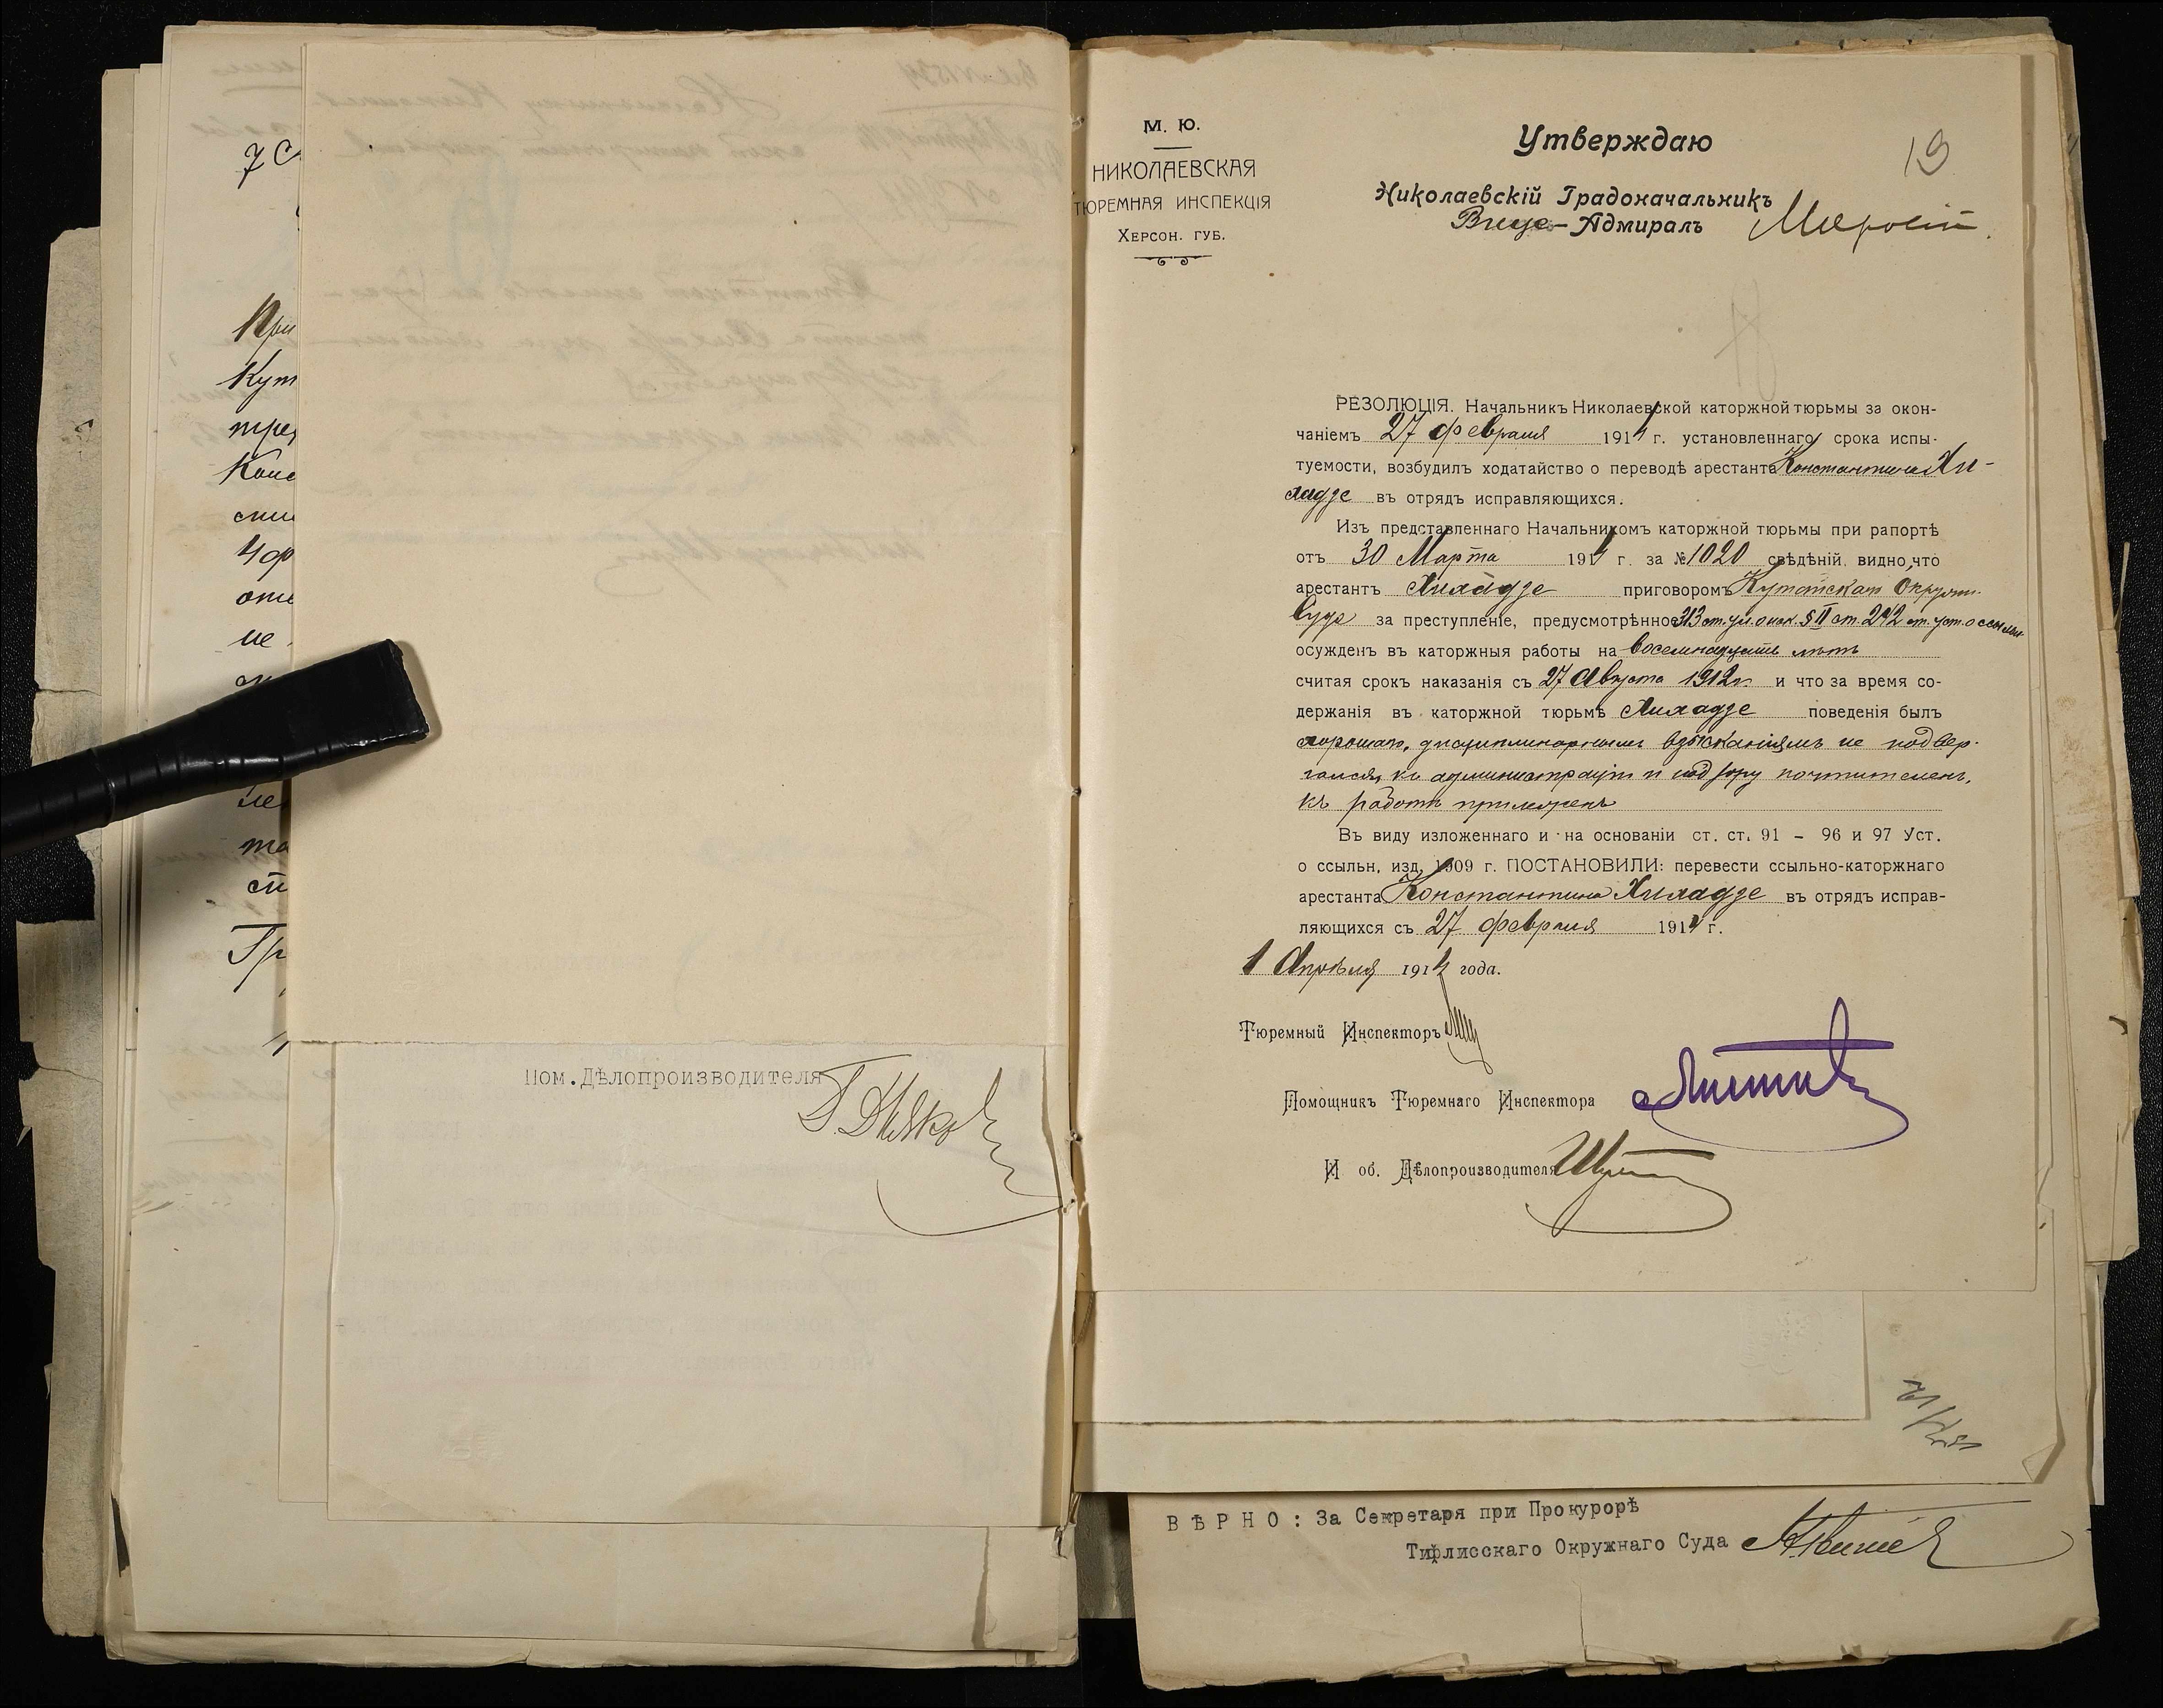 7 С
При
Кут
тре
Конс
Чор
не
ле
та
Гр
Пом. Дѣлопроизводителя
М. Ю.
НИКОЛАЕВСКАЯ
ТЮРЕМНАЯ ИНСПЕКЦІЯ
ХЕРСОН. ГУБ.
Утверждаю
19
Николаевскій Градоначальникъ
Вице-Адмиралъ
РЕЗОЛЮЦІЯ. Начальникъ Николаевской каторжной тюрьмы за окон-
чаніемъ 27 февраля 1914 г. установленнаго срока испы-
туемости, возбудилъ ходатайство о переводѣ арестанта Константина Хи-
ладзе въ отрядъ исправляющихся.
Изъ представленнаго Начальникомъ каторжной тюрьмы при рапортѣ
отъ 30 Марта 1914 г. за № 1020 свѣдѣній видно, что
арестантъ Хиладзе приговоромъ Кутаискаго Окружн.
Суда за преступленіе, предусмотрѣнное 313 ст. ул. о нак. § II ст. 242 ст. уст. о ссыльн
осужденъ въ каторжныя работы на восемнадцать лѣтъ
считая срокъ наказанія съ 27 Августа 1912 г. и что за время со-
держанія въ каторжной тюрьмѣ Хиладзе поведенія былъ
хорошаго, дисциплинарнымъ взысканіямъ не подвер-
гался, къ администраціи и надзору почтителенъ,
къ работѣ прилеженъ
Въ виду изложеннаго и на основаніи ст. ст. 91 – 96 и 97 Уст.
о ссыльн. изд. 1909 г. ПОСТАНОВИЛИ: перевести ссыльно-каторжнаго
арестанта Константина Хиладзе въ отрядъ исправ-
ляющихся съ 27 февраля 1914 г.
1 Апрѣля 1914 года.
Тюремный Инспекторъ
Помощникъ Тюремнаго Инспектора
И об. Дѣлопроизводителя
ВѢРНО: За Секретаря при Прокурорѣ
Тифлисскаго Окружнаго Суда